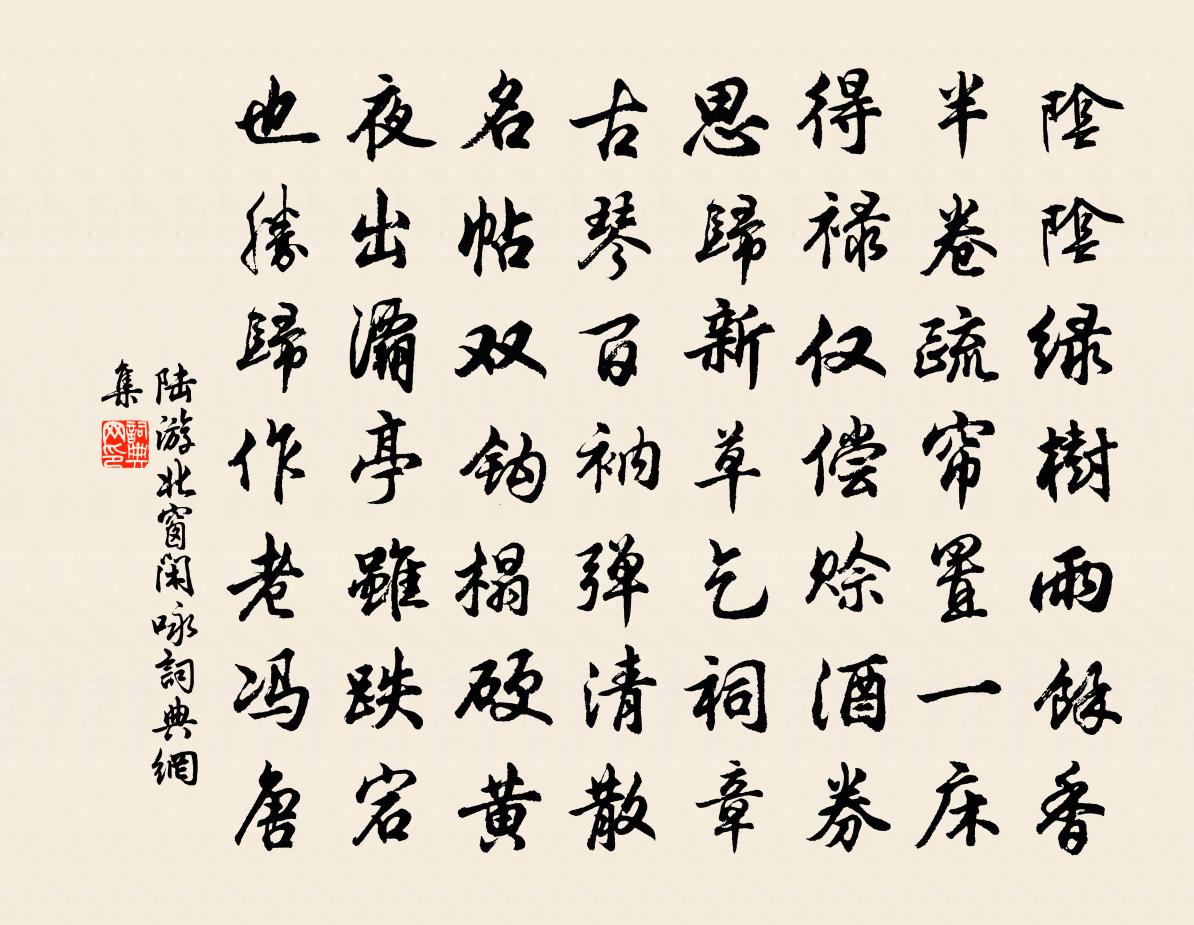 陰陰绿樹雨餘香
半卷疏帘置一床
得禄仅偿赊酒券
思歸新草乞祠章
古琴百衲弹清散
名帖双钩榻硬黄
夜出灞亭雖跌宕
也勝歸作老冯唐
陆游北窗闲咏詞典網
集
詞典网印